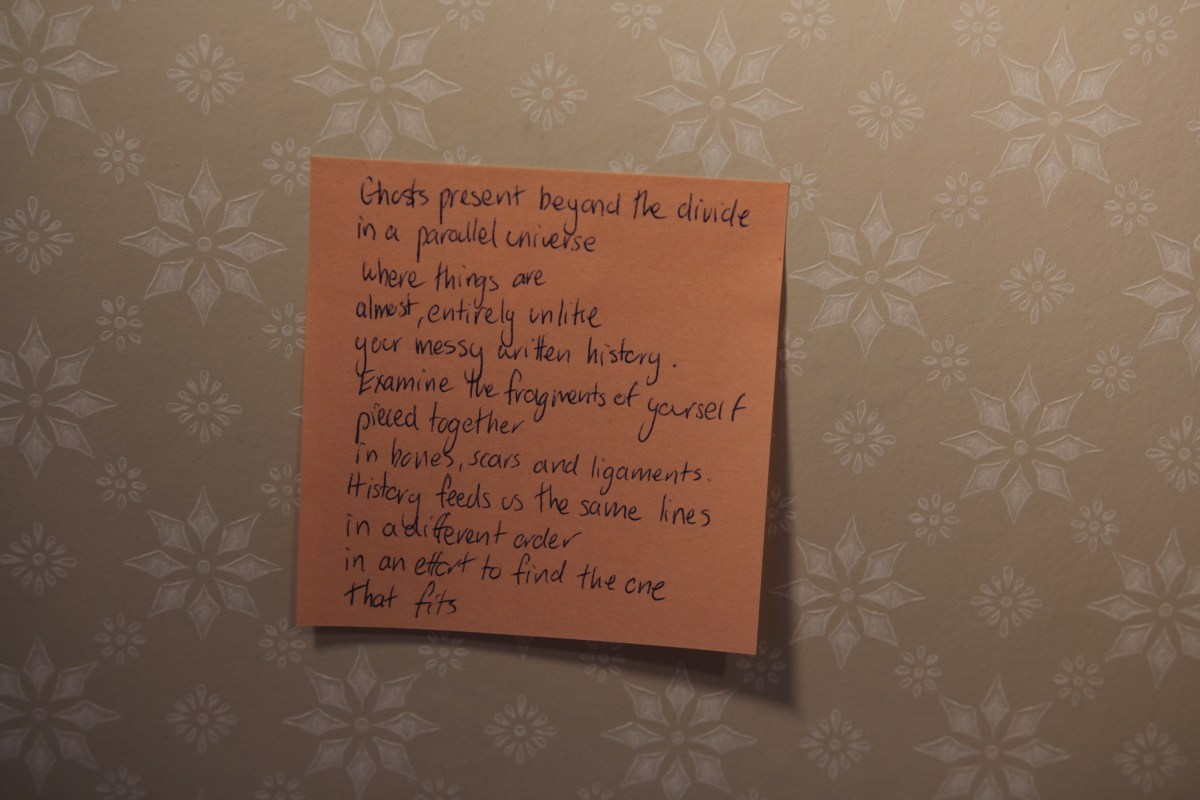 Ghosts present beyond the divide
in a parallel universe
where things are
almost, entirely unlike
your messy written history.
Examine the fragments of yourself
pieced together
in bones, scars and ligaments.
History feeds us the same lines
in a different order
in an effort to find the one
that fits